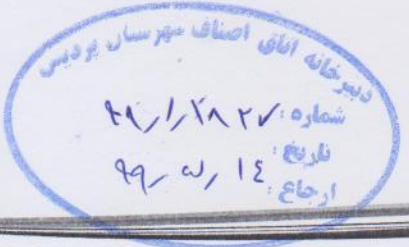 دبیرخانه اتاق اصناف شهرستان پردیس
شماره:
تاریخ: ۹۹/۵/۱۴
ارجاع: